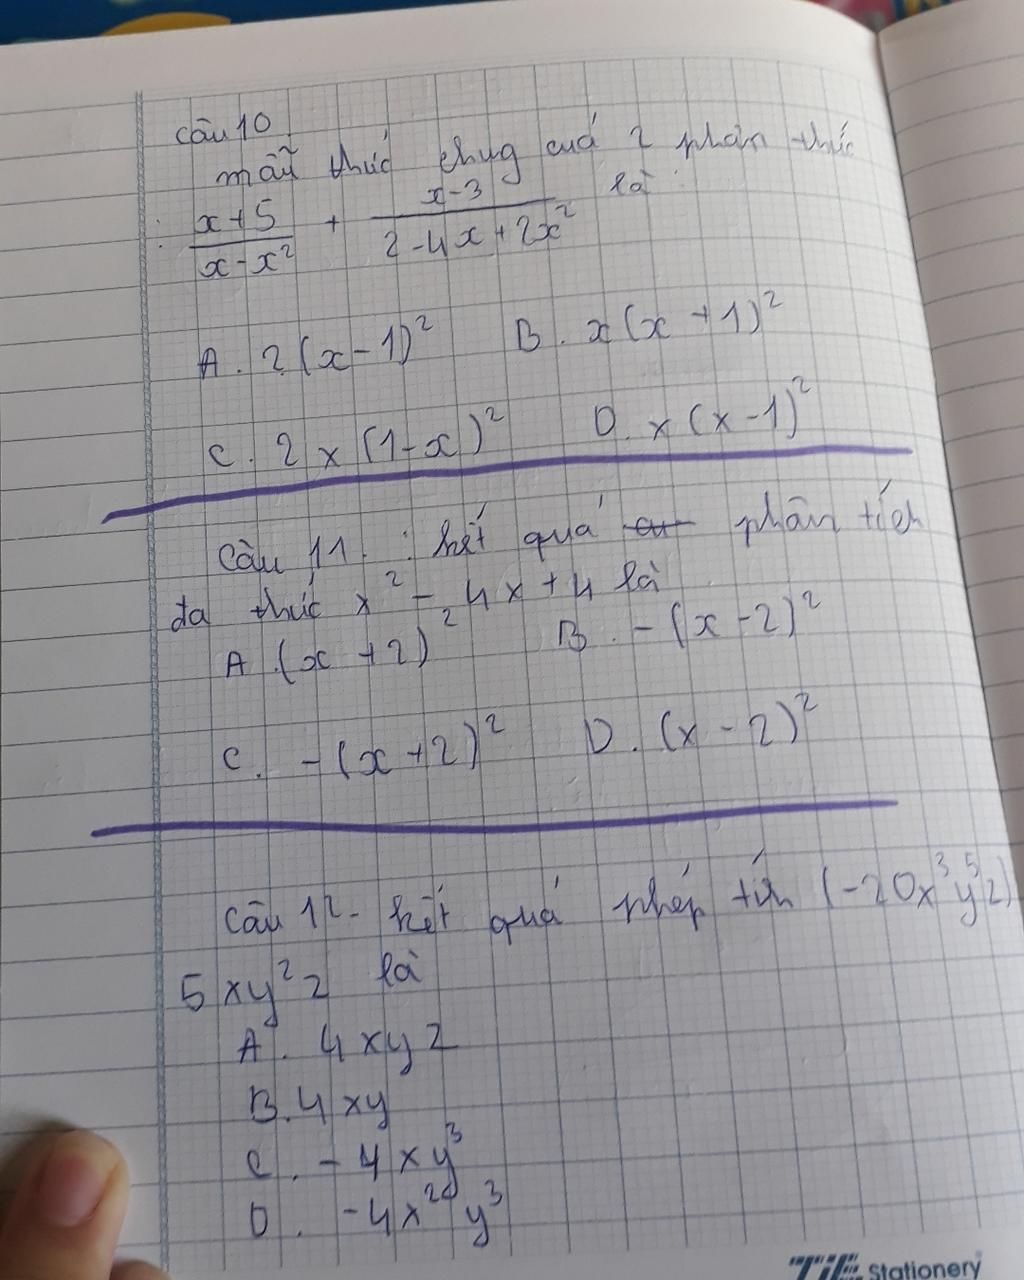 câu 10
mẫu thức chug cuả 2 phân thức
: x+5/x-x² + x-3/2-4x+2x² là:
A. 2(x-1)² B. x(x+1)²
C. 2x(1-x)² D. x(x-1)²
Câu 11. : kết quả phân tích
đa thức x² - 4x + 4 là
A. (x+2)² B. -(x-2)²
C. -(x+2)² D. (x-2)²
Câu 12. kết quả phép tính (-20x³y⁵z)
5xy²z là
A. 4xyz
B. 4xy
C. -4xy³
D. -4x²y³
TiE Stationery